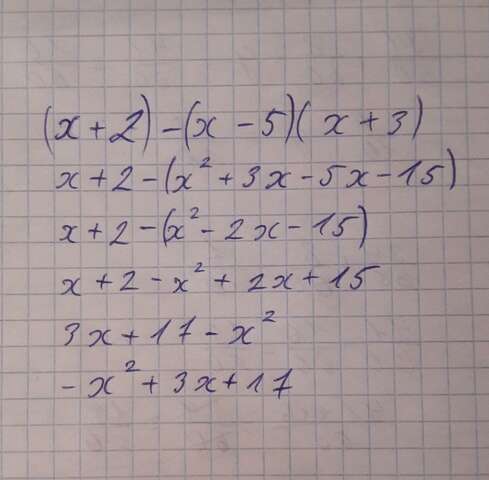 (x + 2) - (x - 5)( x + 3)
x + 2 - (x² + 3x - 5x - 15)
x + 2 - (x² - 2x - 15)
x + 2 - x² + 2x + 15
3x + 17 - x²
- x² + 3x + 17